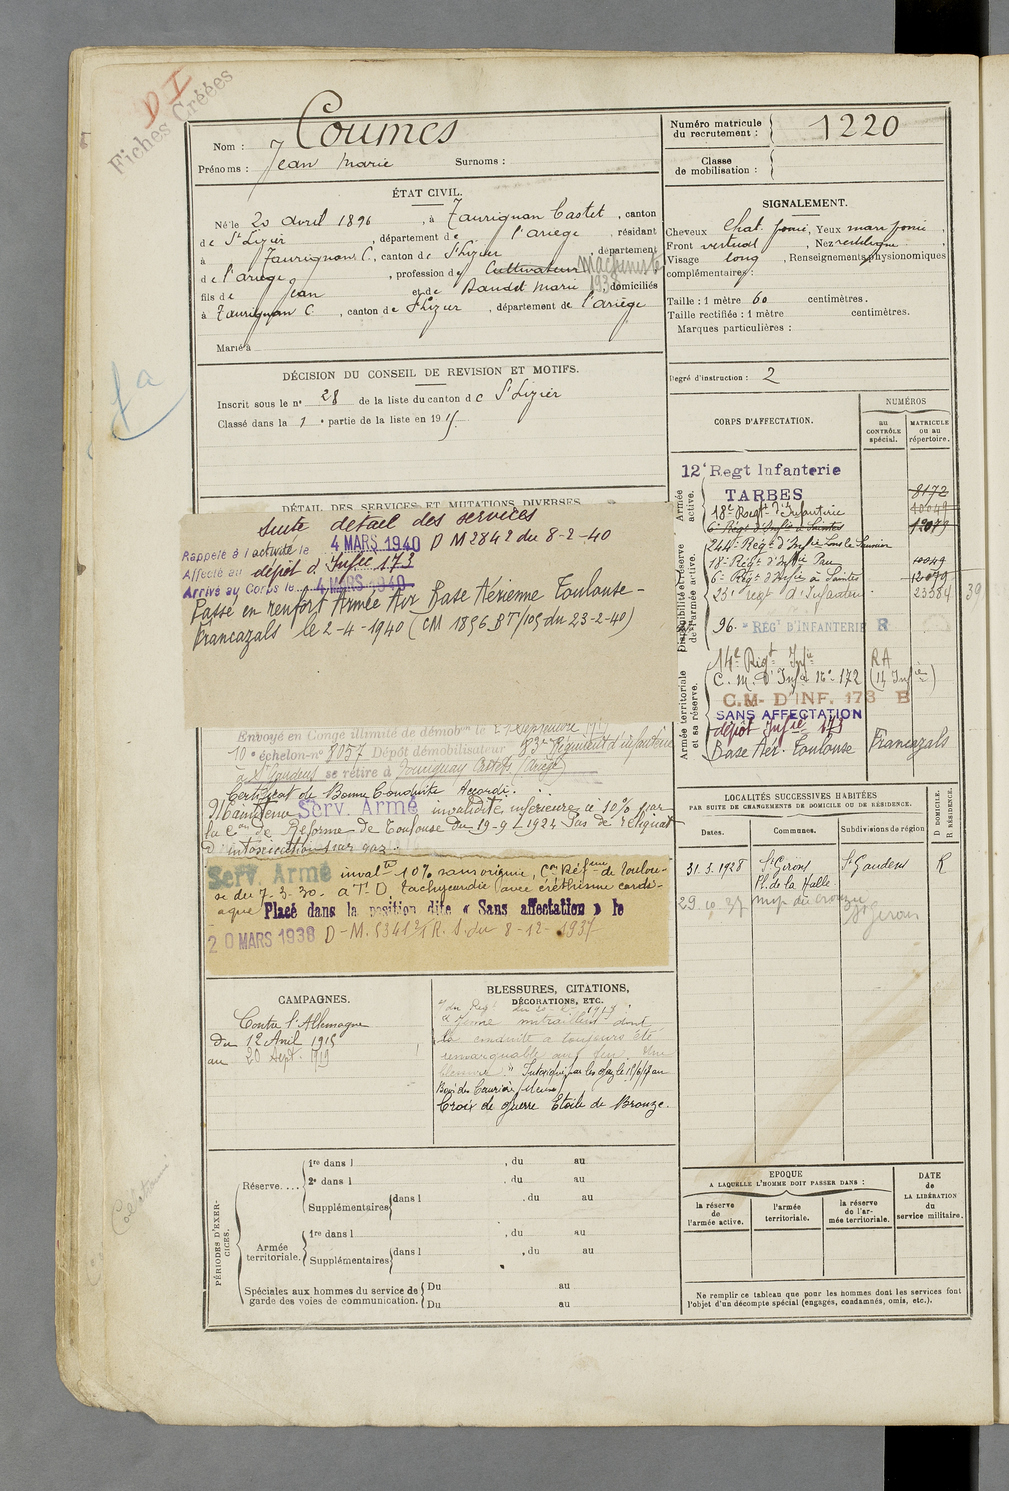 D I
Fiches Créées
Nom : Coumes
Prénoms : Jean Marie Surnoms :
Numéro matricule du recrutement : 1220
Classe de mobilisation :
ÉTAT CIVIL.
Né le 20 avril 1896, à Taurignan Castet, canton
de St Lizier, département de l'ariège, résidant
à Taurignan C., canton de St Lizier, département
de l'ariège, profession de Cultivateur machiniste
1938
fils de Jean et de Baudet Marie, domiciliés
à Taurignan C, canton de St Lizier, département de l'ariège
Marié à
SIGNALEMENT.
Cheveux Chat. foncé, Yeux marr foncé,
Front vertical, Nez rectiligne,
Visage long, Renseignements physionomiques
complémentaires :
Taille : 1 mètre 60 centimètres.
Taille rectifiée : 1 mètre centimètres.
Marques particulières :
Degré d'instruction : 2
DÉCISION DU CONSEIL DE REVISION ET MOTIFS.
Inscrit sous le n° 28 de la liste du canton de St Lizier
Classé dans la 1e partie de la liste en 1915.
DÉTAIL DES SERVICES ET MUTATIONS DIVERSES
Suite détail des services
Rappelé à l'activité le 4 MARS 1940 D M 2842 du 8-2-40
Affecté au dépôt d'Infie 173
Arrivé au Corps le 4 MARS 1940
Passé en renfort Armée Air Base Aérienne Toulouse-
Francazals le 2-4-1940 (CM 1896 BT/105 du 23-2-40)
Envoyé en Congé illimité de démobon le Septembre 1919
10e échelon n° 8057 Dépôt démobilisateur 83e Régiment d'infanterie
à St Gaudens se retire à
Certificat de Bonne Conduite Accordé.
Maintenu Serv. Armé invalidité inférieure à 10% par
la Con de Réforme de Toulouse du 19-9-1924 Pas de reliquat
D'intoxication par gaz.
Serv. Armé invalté -10% sans origine, Con Réfme de Toulou-
se du 7-3-30. a T. D. tachycardie avec éréthisme cardi-
aque Placé dans la position dite « Sans affectation » le
20 MARS 1938 D-M. du 8-12-1937
CORPS D'AFFECTATION.
NUMÉROS
au CONTRÔLE spécial.
MATRICULE ou au répertoire.
Armée active.
12e Regt Infanterie
TARBES 8172
18e Regt d'Infanterie 10049
6e Régt d'Infie à Saintes 12079
Disponibilité et réserve de l'armée active.
244e Régt d'Infie Lons le Saunier
18e Régt d'Infie Pau 10049
6e Régt d'Infie à Saintes 12079
23e regt d'Infanterie 23584 39
96e RÉGt D'INFANTERIE R
Armée territoriale et sa réserve.
14e Régt Infie RA
C. M. D'Infie N° 172 (14 Infie)
C.M. D'INF. 173 B
SANS AFFECTATION
dépôt Infie 173
Base Aér. Toulouse Francazals
LOCALITÉS SUCCESSIVES HABITÉES
PAR SUITE DE CHANGEMENTS DE DOMICILE OU DE RÉSIDENCE.
Dates. Communes. Subdivisions de région D DOMICILE. R RÉSIDENCE.
31.3.1928 St Girons St Gaudens R
Pl. de la Halle
29.10.37
St Girons
CAMPAGNES.
Contre l'Allemagne
du 12 Avril 1915
au 20 Sept. 1919
BLESSURES, CITATIONS,
DÉCORATIONS, ETC.
Jeune mitrailleur dont
la conduite a toujours été
remarquable au feu. Une
blessure." Intoxiqué par les gaz le
Bois des Caurières (Meuse)
Croix de guerre Etoile de Bronze.
PÉRIODES D'EXERCICES.
Réserve.... 1re dans l , du au
2e dans l , du au
Supplémentaires dans l , du au
Armée territoriale. 1re dans l , du au
Supplémentaires dans l , du au
Spéciales aux hommes du service de Du au
garde des voies de communication. Du au
EPOQUE
A LAQUELLE L'HOMME DOIT PASSER DANS :
la réserve de l'armée active.
l'armée territoriale.
la réserve de l'armée territoriale.
DATE de LA LIBÉRATION du service militaire.
Ne remplir ce tableau que pour les hommes dont les services font
l'objet d'un décompte spécial (engagés, condamnés, omis, etc.).
Collationné